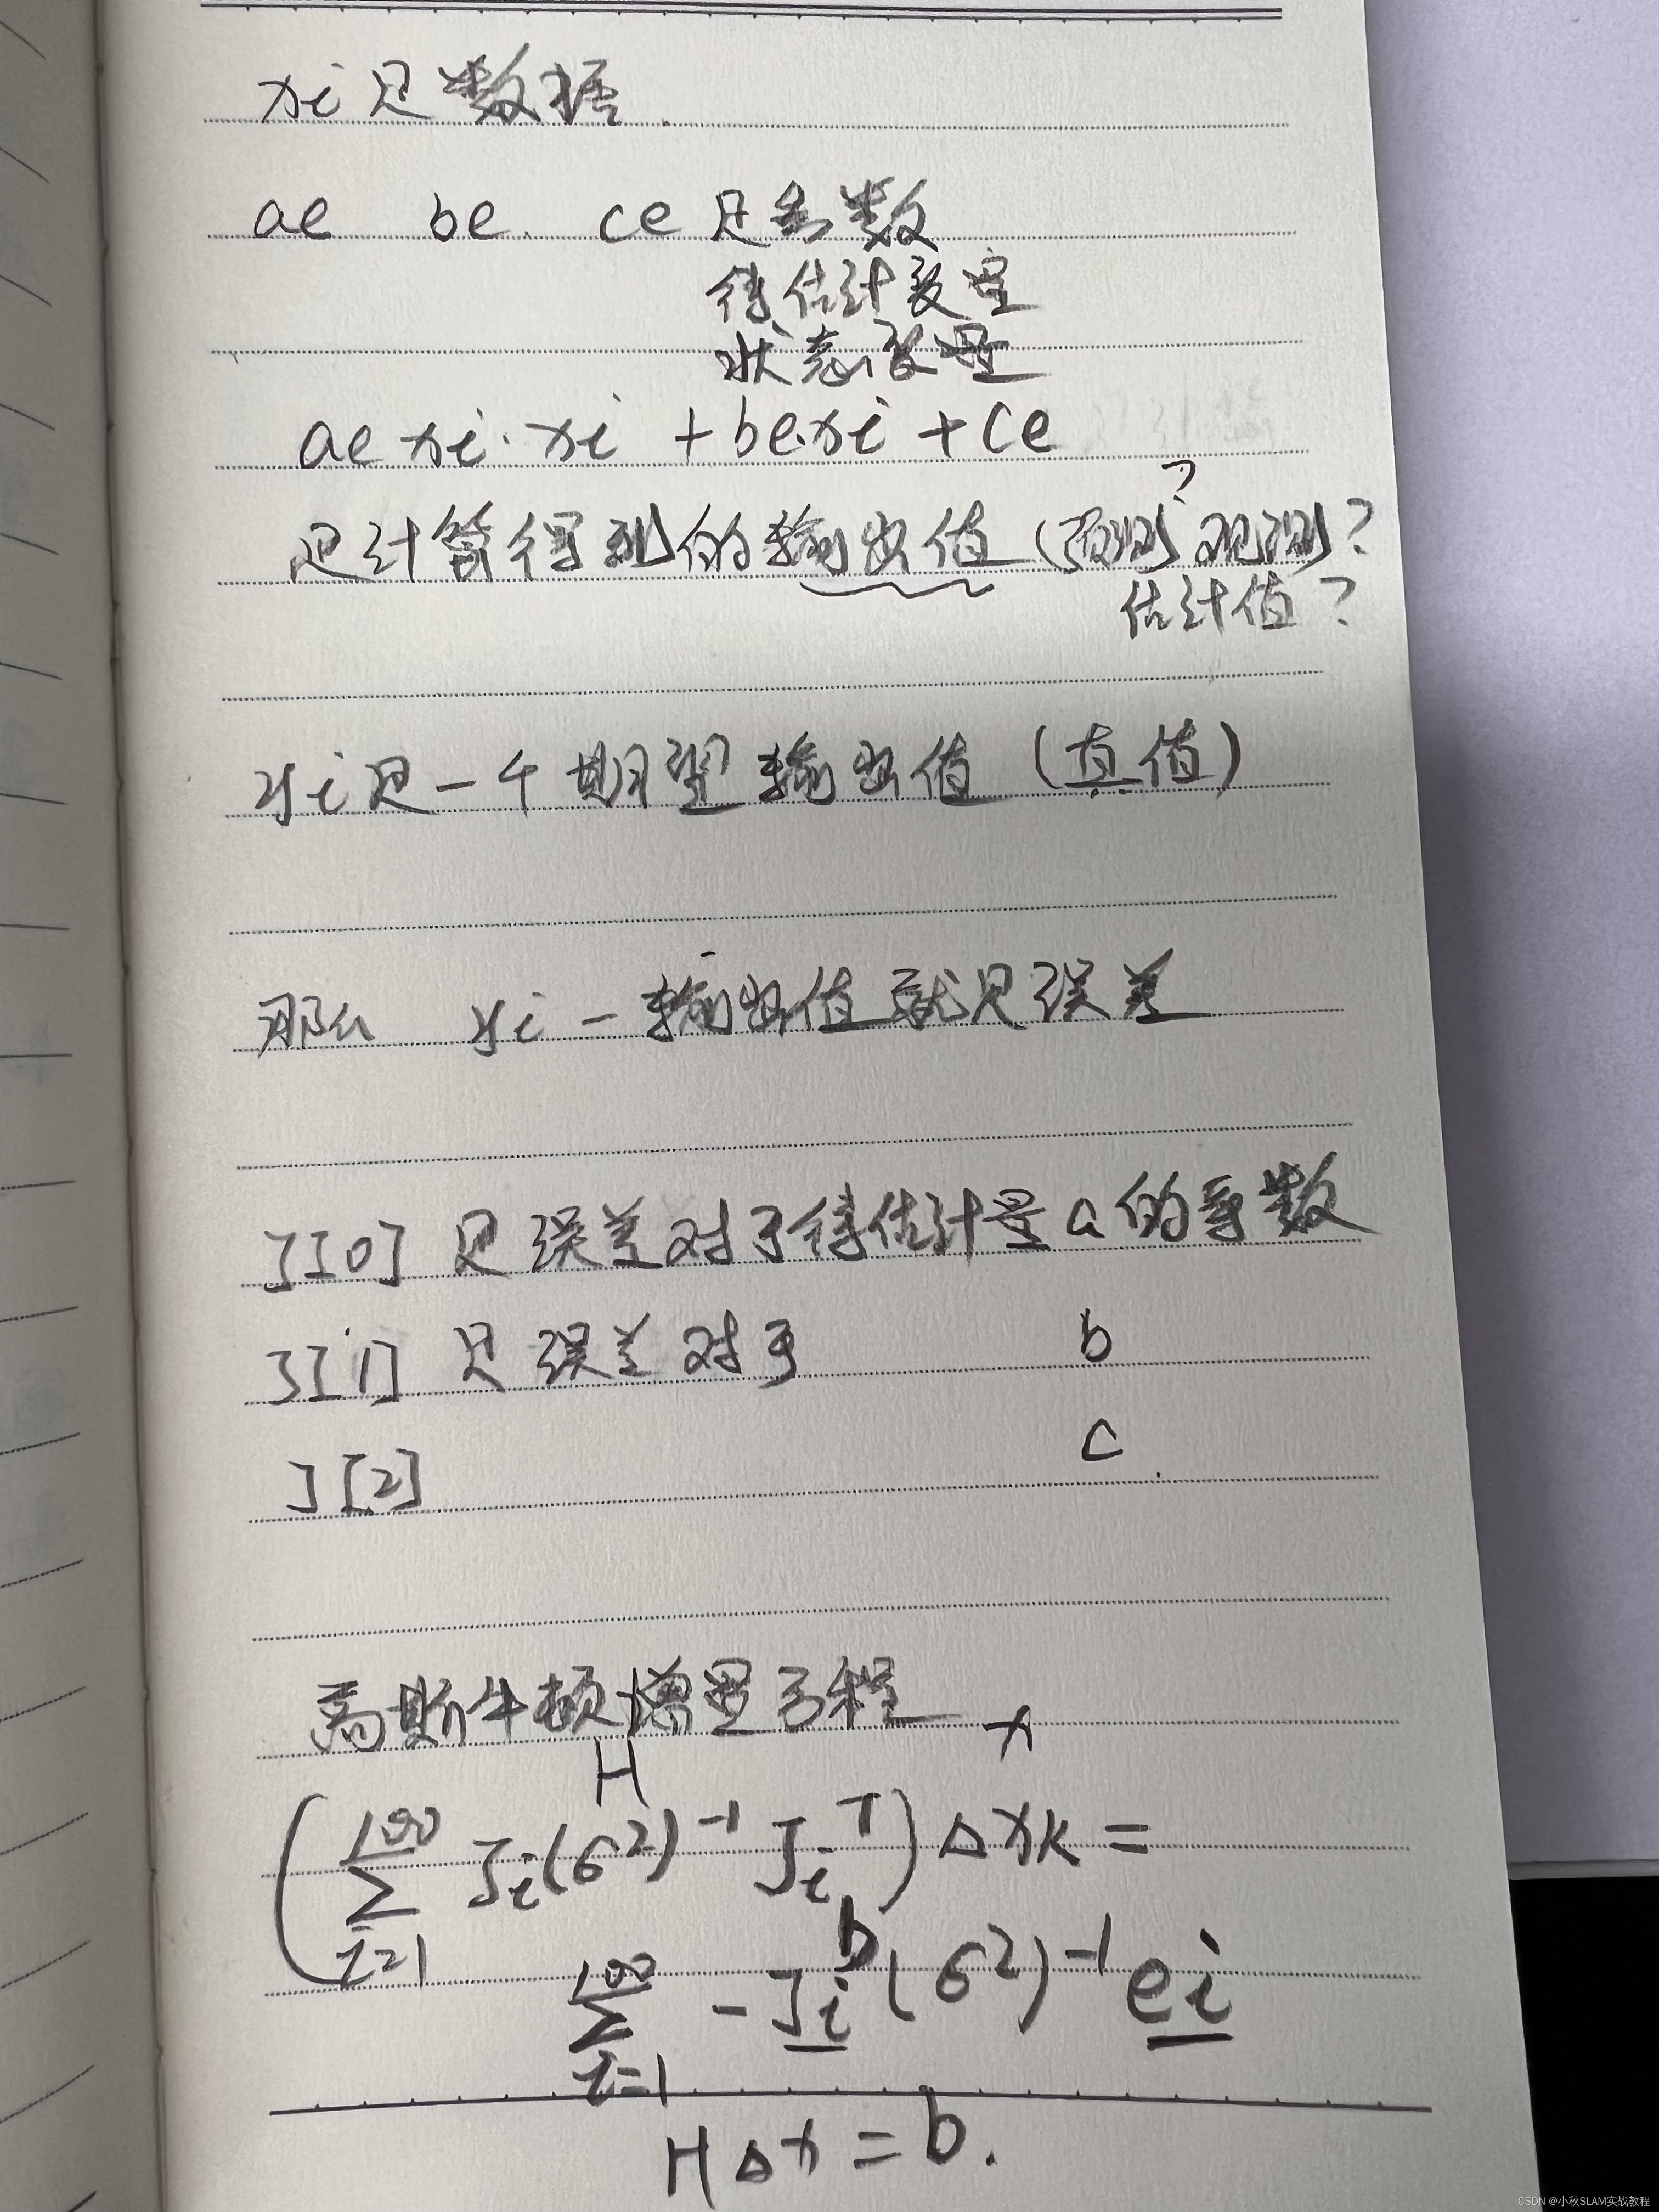 xi是数据.
ae be. ce 是参数
待估计变量
状态变量
ae xi·xi + be·xi + ce
是计算得到的输出值(预测? 观测?
估计值?
yi是一个期望输出值(真值)
那么 yi - 输出值就是误差
J[0] 是误差对于待估计量a的导数
J[1] 是误差对于 b
J[2] c
高斯牛顿增量方程
H x
(∑_{i=1}^{100} J_i(σ²)^{-1} J_i^T) Δx_k =
b
∑_{i=1}^{100} -J_i(σ²)^{-1} e_i
HΔx = b.
CSDN @小秋SLAM实战教程